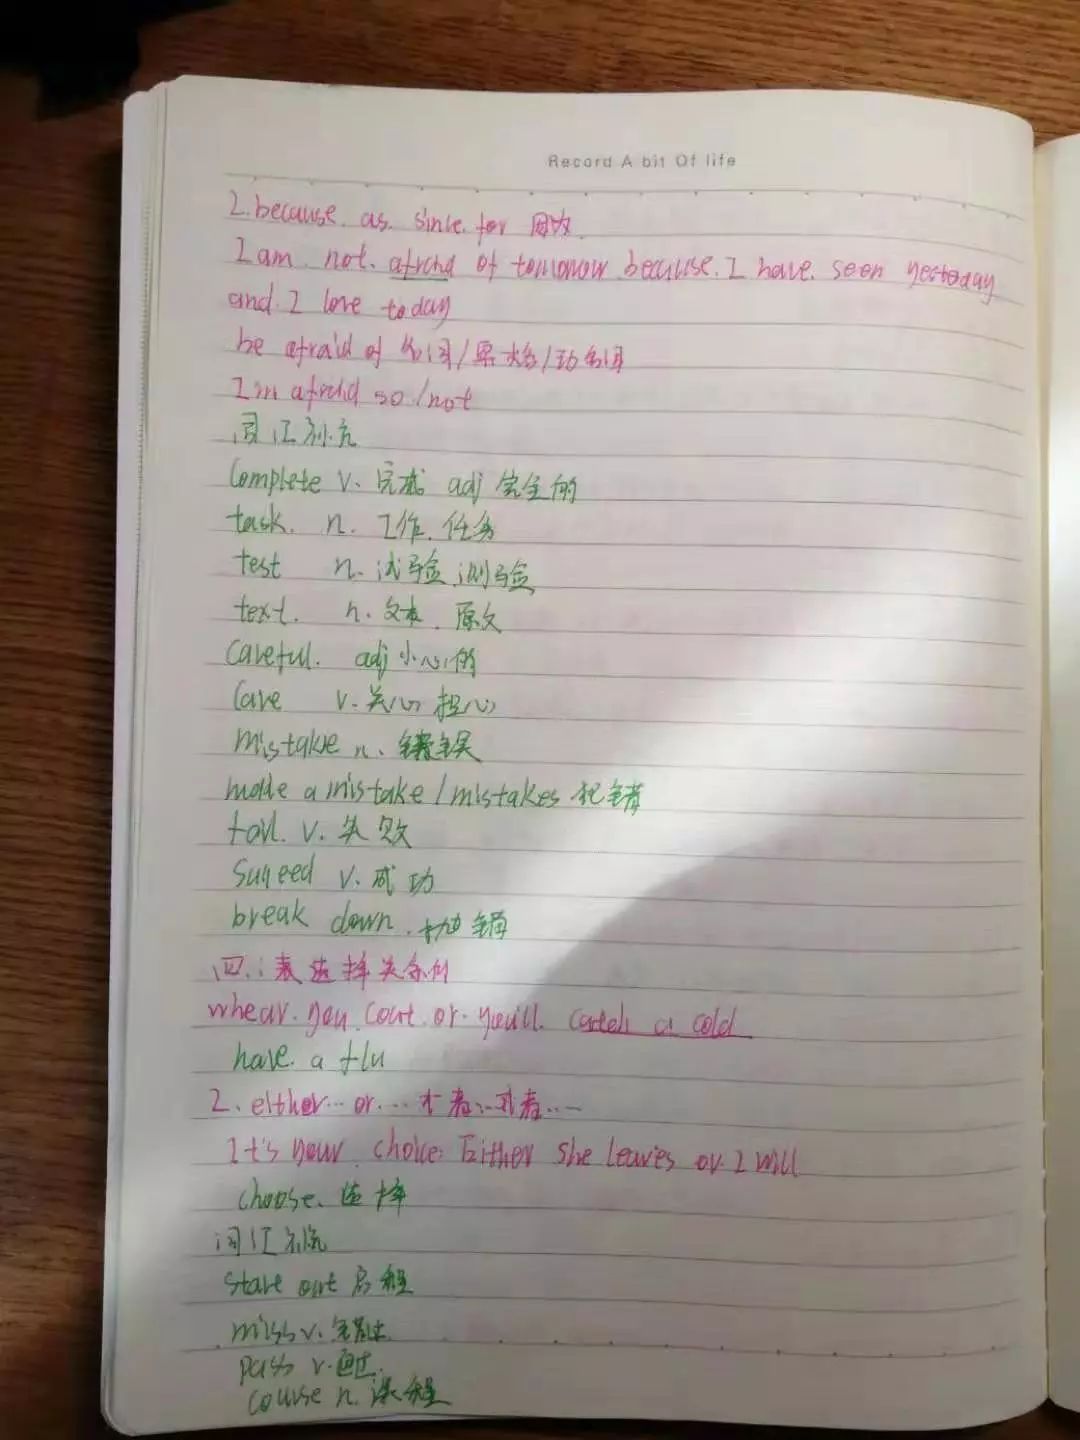 Record A bit Of life
2. because. as. since. for 因为.
I am not. afraid of tomorrow because. I have. seen yestoday
and. I love today
be afraid of 名词/票大格/动名词
I'm afraid so/not
词汇补充
Complete v. 完成 adj 完全的
task. n. 工作. 任务
test n. 试验 测验
text. n. 文本. 原文
Careful. adj 小心的
Care v. 关心 担心
mistake n. 错误
made a mistake/mistakes 犯错
fail. v. 失败
Suceed v. 成功
break down. 抛锚
四.: 表选择关系句
whear. you. coat. or. you'll. catch a cold
have. a flu
2. either... or.... 或者...或者...
It's your. choice: Either she leaves or. I will
choose. 选择
词汇补充
start out 启程
miss v. 错过.
pass v. 通过.
course n. 课程